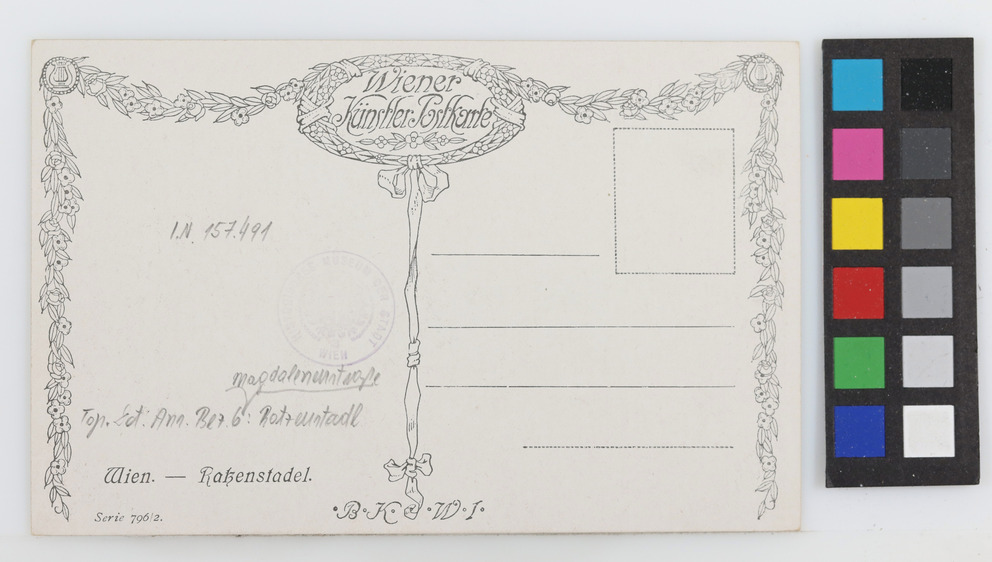 Wiener
Künstler Postkarte
I.N. 157.491
MUSEUM DER STADT
WIEN
Magdalenenstraße
Top. Bez. 6: Ratzenstadl
Wien. — Ratzenstadel.
Serie 796/2.
·B·K·W·I·